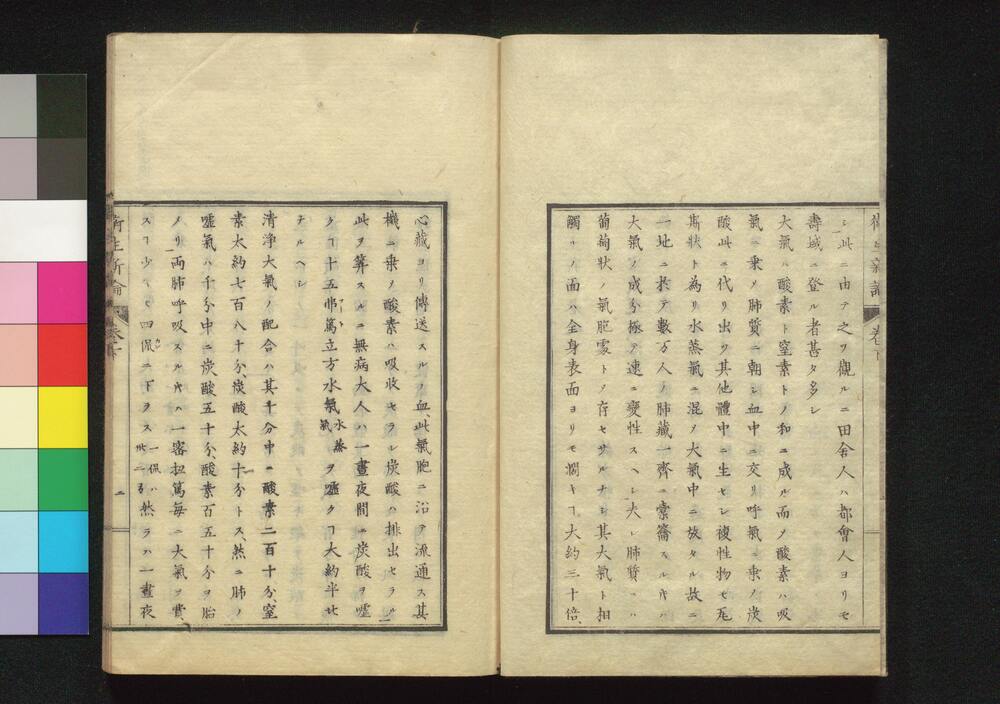 シ此ニ由テ之ヲ觀ルニ田舍人ハ都會人ヨリモ
壽域ニ登ル者甚タ多シ
大氣ハ酸素ト窒素トノ和ニ成ル而ノ酸素ハ吸
氣ニ乗ノ肺質ニ朝シ血中ニ交リ呼氣ニ乗ノ炭
酸此ニ代リ出ツ其他體中ニ生セシ複性物モ瓦
斯狀ト為リ水蒸氣ニ混ノ大氣中ニ放タル故ニ
一地ニ於テ數万人ノ肺藏一齊ニ橐籥スル𪜈ハ
大氣ノ成分極テ速ニ變性スヘシ夫レ肺質ニハ
葡萄狀ノ氣胞寡トノ存セサルナシ其大氣ト相
觸ルノ面ハ全身表面ヨリモ濶キヿ大約三十倍、
心藏ヨリ傳送スルノ血、此氣胞ニ沿テ流通ス其
機ニ乗ノ酸素ハ吸收セラレ炭酸ハ排出セラル
此ヲ算スルニ無病大人ハ一晝夜間ニ炭酸ヲ嘘
クヿ十五弗篤立方水氣水蒸氣ヲ嘘クヿ大約半
ナルヘシ
清浄大氣ノ配合ハ其千分中ニ酸素二百十分、窒
素太約七百八十分、炭酸太約十分トス、然ニ肺ノ
嘘氣ハ千分中ニ炭酸五十分、酸素百五十分ヲ胎
ノリ両肺呼吸スル𪜈ハ一密扭篤每ニ大氣ヲ費、
スヿ少クモ四佩ニ下ラス一佩ハ然ラハ一晝夜
衛生新論 卷下
二